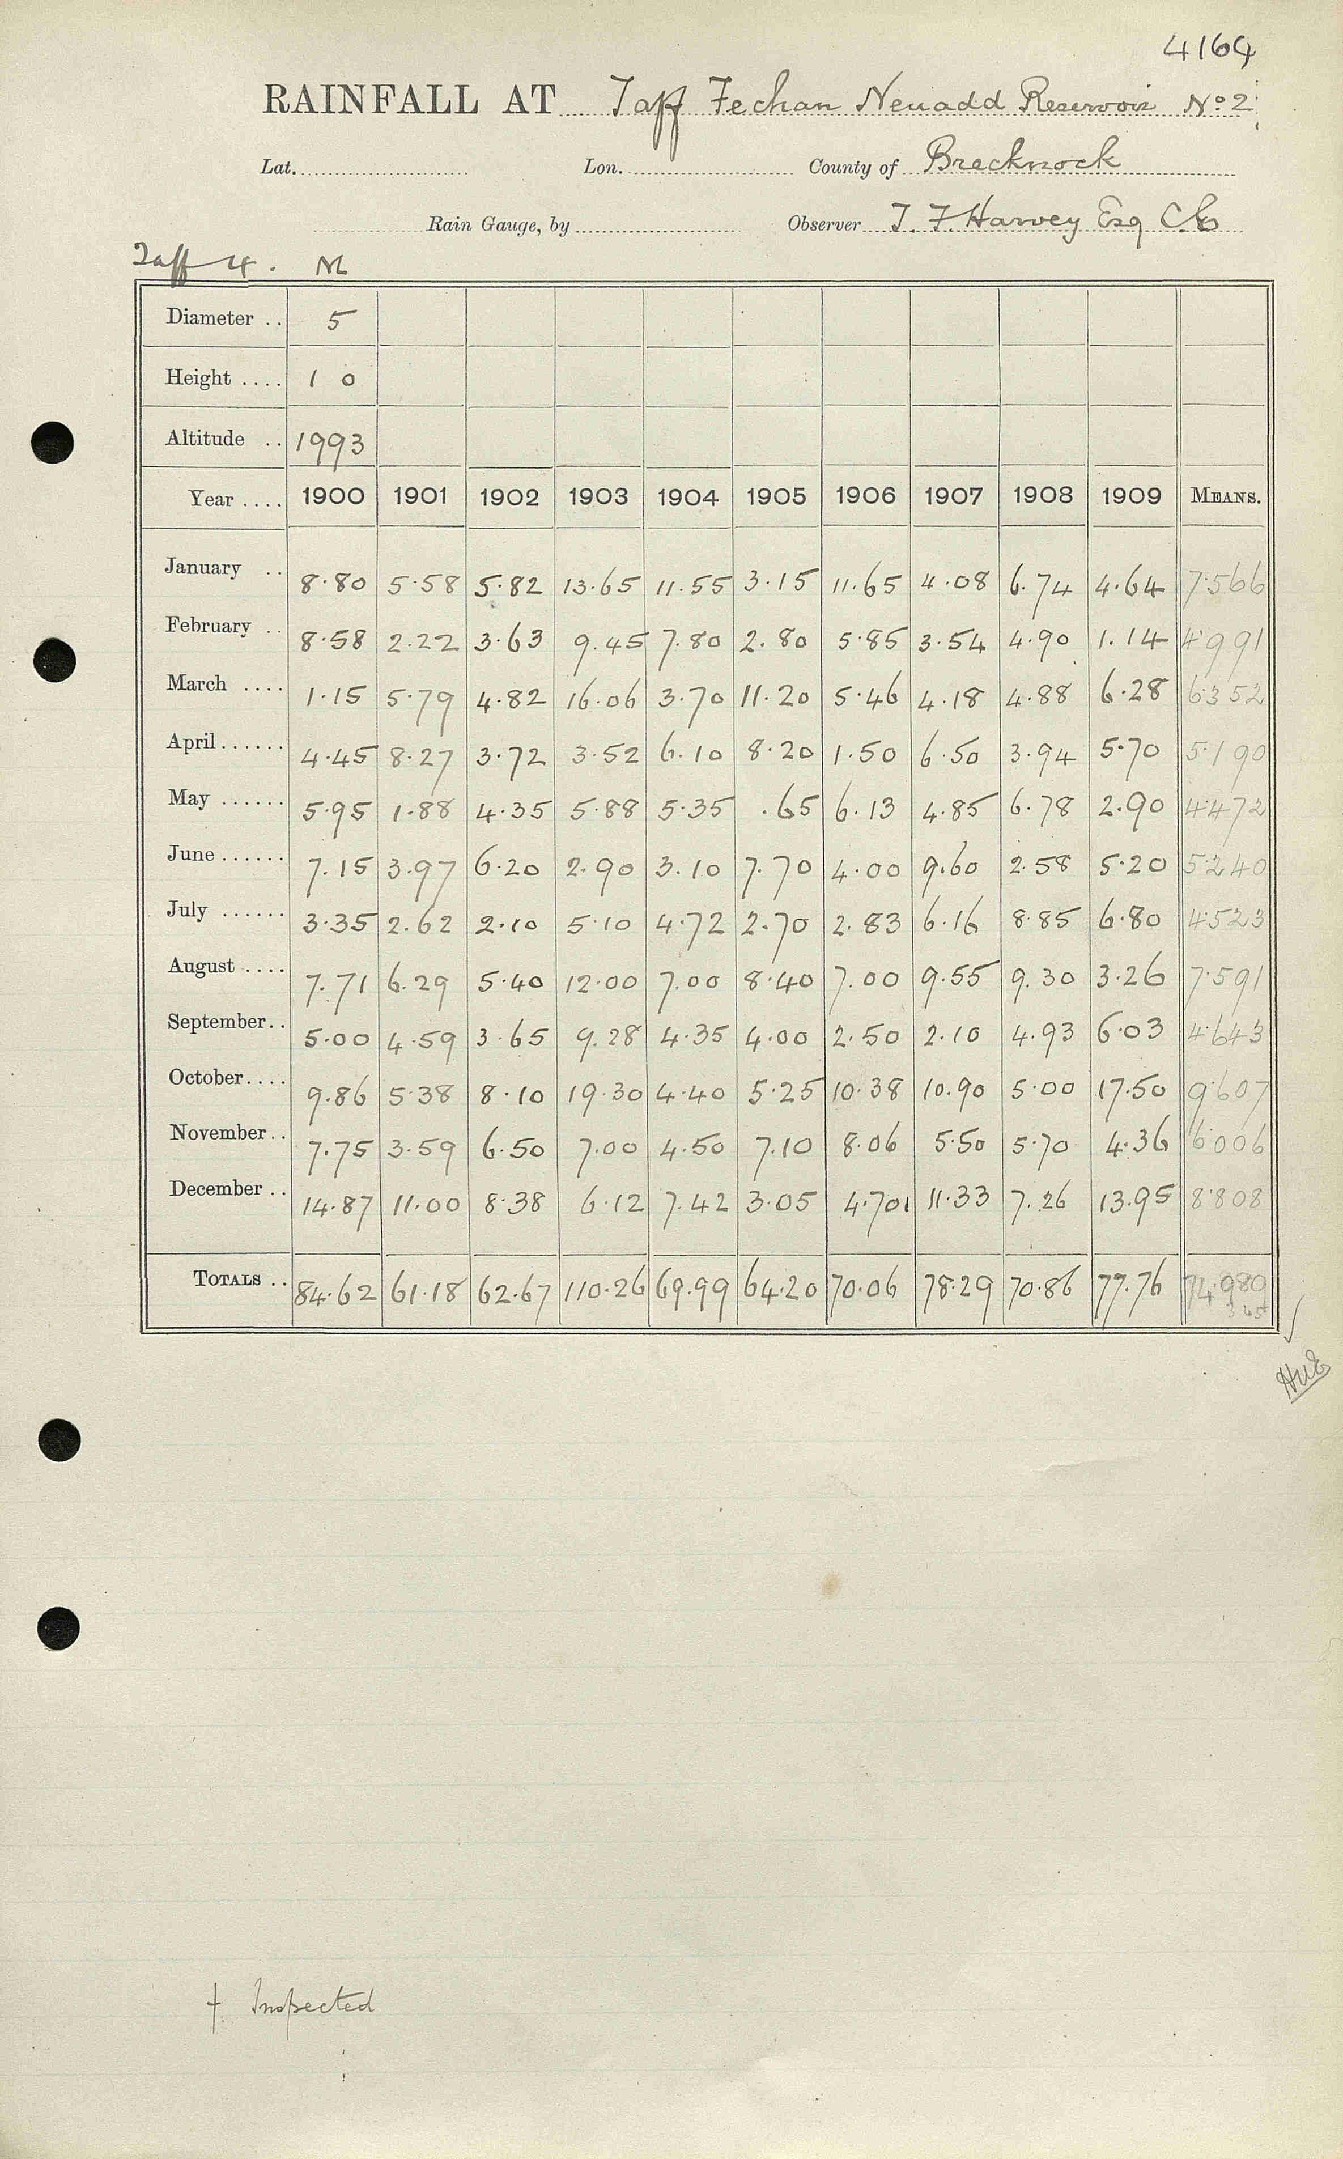 4164
RAINFALL AT Taff Fechan Neuadd Reservoir No 2
Lat. Lon. County of Brecknock
Rain Gauge, by Observer T. F. Harvey Esq C.E
Taff 4. M
Diameter .. 5
Height .... 1 0
Altitude .. 1993
Year .... 1900 1901 1902 1903 1904 1905 1906 1907 1908 1909 MEANS.
January .. 8.80 5.58 5.82 13.65 11.55 3.15 11.65 4.08 6.74 4.64 7.566
February .. 8.58 2.22 3.63 9.45 7.80 2.80 5.85 3.54 4.90 1.14 4.991
March .... 1.15 5.79 4.82 16.06 3.70 11.20 5.46 4.18 4.88 6.28 6.352
April...... 4.45 8.27 3.72 3.52 6.10 8.20 1.50 6.50 3.94 5.70 5.190
May ...... 5.95 1.88 4.35 5.88 5.35 .65 6.13 4.85 6.78 2.90 4.472
June...... 7.15 3.97 6.20 2.90 3.10 7.70 4.00 9.60 2.58 5.20 5.240
July ...... 3.35 2.62 2.10 5.10 4.72 2.70 2.83 6.16 8.85 6.80 4.523
August .... 7.71 6.29 5.40 12.00 7.00 8.40 7.00 9.55 9.30 3.26 7.591
September.. 5.00 4.59 3.65 9.28 4.35 4.00 2.50 2.10 4.93 6.03 4.643
October.... 9.86 5.38 8.10 19.30 4.40 5.25 10.38 10.90 5.00 17.50 9.607
November.. 7.75 3.59 6.50 7.00 4.50 7.10 8.06 5.50 5.70 4.36 6.006
December .. 14.87 11.00 8.38 6.12 7.42 3.05 4.70 11.33 7.26 13.95 8.808
TOTALS .. 84.62 61.18 62.67 110.26 69.99 64.20 70.06 78.29 70.86 77.76 74.980
† Inspected